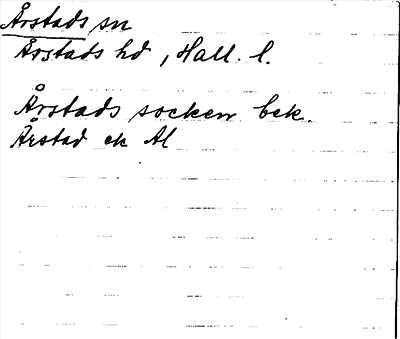 Årstads sn
Årstads hd, Hall. l.
Årstads socken bek.
Årstad ek Al